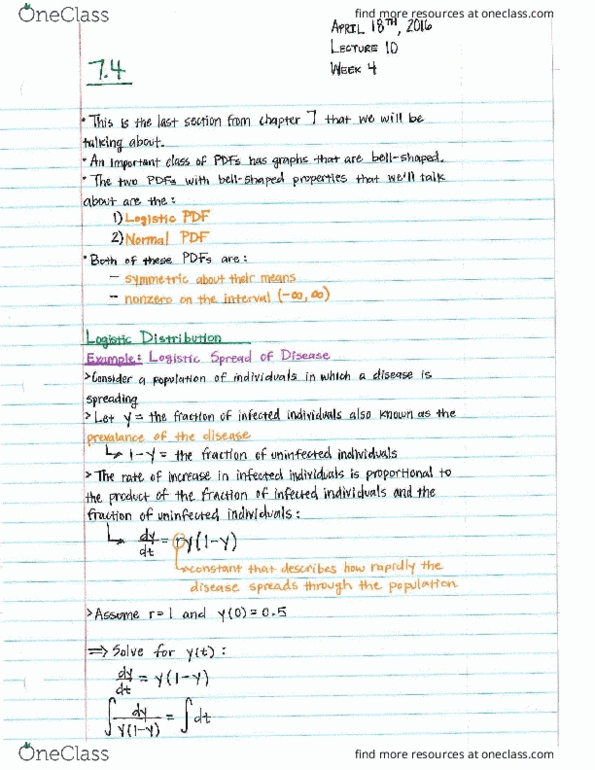 OneClass
find more resources at oneclass.com
APRIL 18TH, 2016
LECTURE 10
WEEK 4
7.4
• This is the last section from chapter 7 that we will be
talking about.
• An important class of PDFs has graphs that are bell-shaped.
• The two PDFs with bell-shaped properties that we'll talk
about are the:
1) Logistic PDF
2) Normal PDF
• Both of these PDFs are:
– symmetric about their means
– nonzero on the interval (-∞, ∞)
Logistic Distribution
Example: Logistic Spread of Disease
> Consider a population of individuals in which a disease is
spreading
> Let y = the fraction of infected individuals also known as the
prevalance of the disease
↳ 1-y = the fraction of uninfected individuals
> The rate of increase in infected individuals is proportional to
the product of the fraction of infected individuals and the
fraction of uninfected individuals:
↳ dy/dt = ry(1-y)
↳ constant that describes how rapidly the
disease spreads through the population
> Assume r=1 and y(0)=0.5
⟹ Solve for y(t):
dy/dt = y(1-y)
∫ dy/y(1-y) = ∫ dt
OneClass
find more resources at oneclass.com